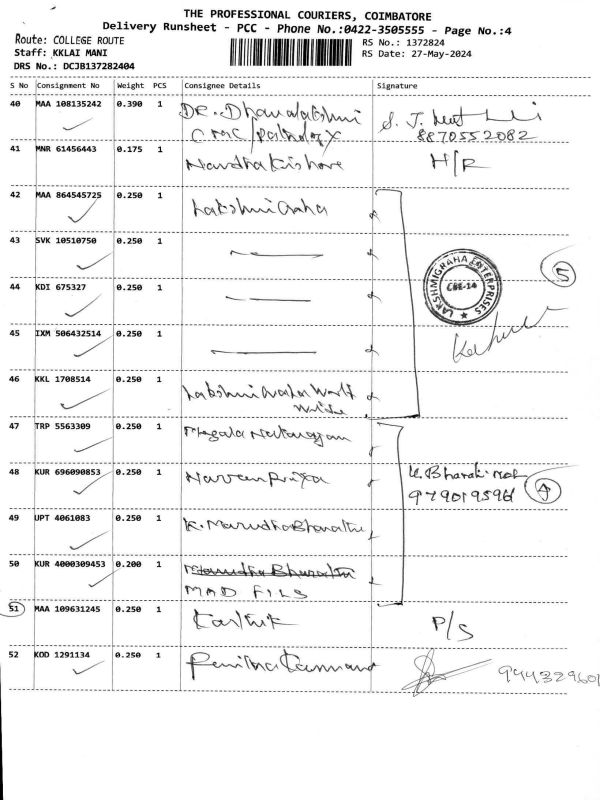 THE PROFESSIONAL COURIERS, COIMBATORE
Delivery Runsheet - PCC - Phone No.:0422-3505555 - Page No.:4
Route: COLLEGE ROUTE
RS No.: 1372824
Staff: KKLAI MANI
RS Date: 27-May-2024
DRS No.: DCJB137282404
S No Consignment No Weight PCS Consignee Details Signature
40 MAA 108135242 0.390 1 DR. Dhanalakshmi
CMC/Pathology
S. J.
8870552082
41 MNR 61456443 0.175 1 Nandha Kishore H/R
42 MAA 864545725 0.250 1 Lakshmi Graha
43 SVK 10510750 0.250 1
LAKSHMIGRAHA ENTERPRISES
CBE-14
5
44 KDI 675327 0.250 1
45 IXM 506432514 0.250 1
46 KKL 1708514 0.250 1 Lakshmi Graha World
47 TRP 5563309 0.250 1 Megala Natarajan
48 KUR 696090853 0.250 1 Naveen Priya K. Bharathi
4
49 UPT 4061083 0.250 1 K. Marudha Bharathi
50 KUR 4000309453 0.200 1 Marudha Bharathi
MAD FILS
51 MAA 109631245 0.250 1 Karthik P/S
52 KOD 1291134 0.250 1
944329601